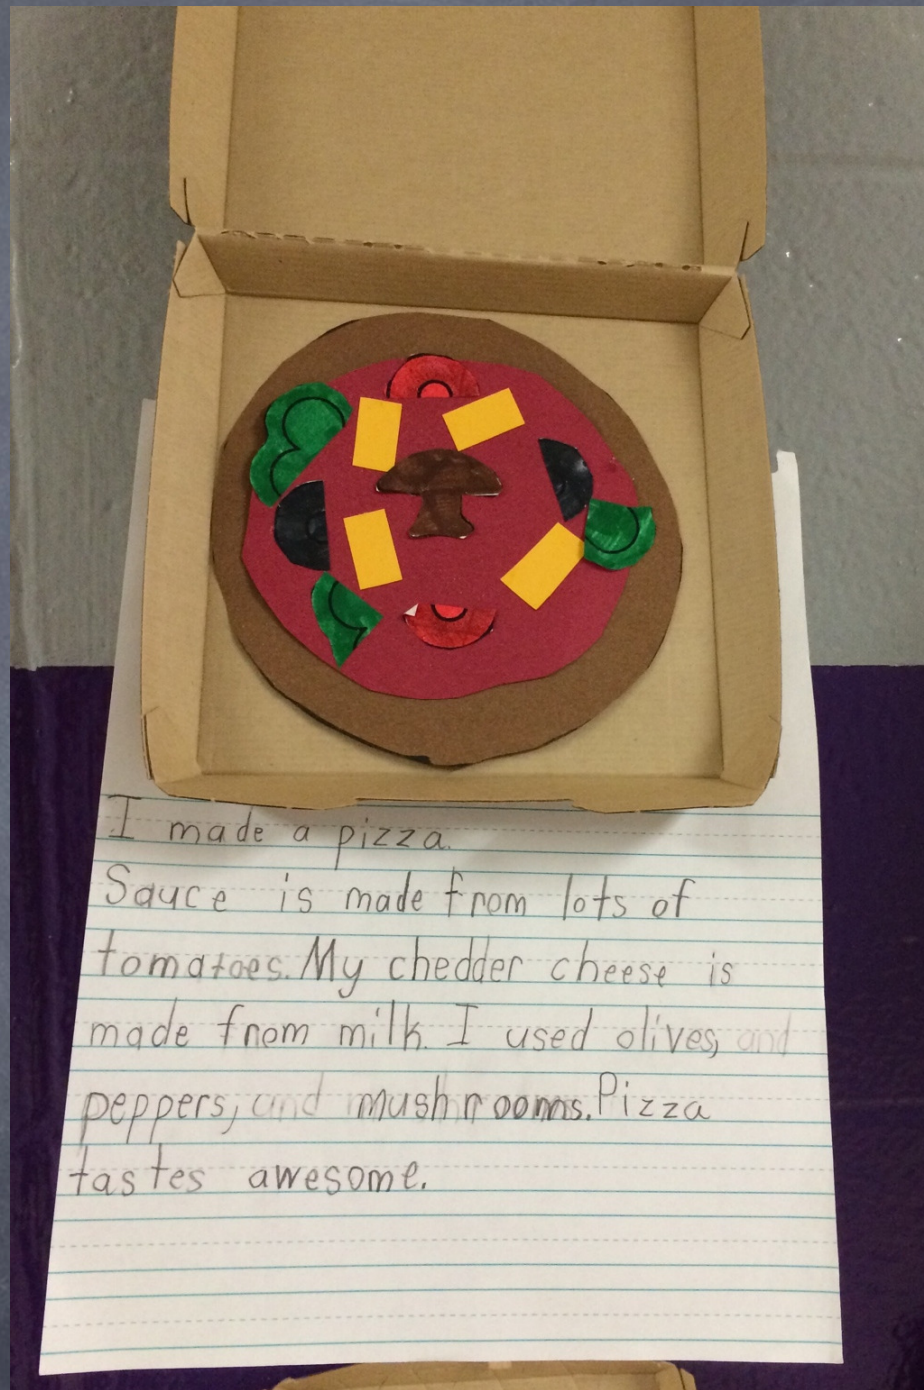 I made a pizza.
Sauce is made from lots of
tomatoes. My chedder cheese is
made from milk. I used olives, and
peppers, and mushrooms. Pizza
tastes awesome.